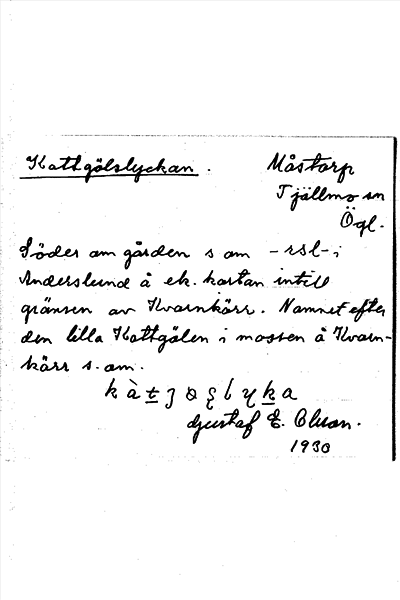 Kattgölslyckan. Måstorp
Tjällmo sn
Ögl.
Söder om gården s om -rsl- i
Anderslund å ek. kartan intill
gränsen av Kvarnkärr. Namnet efter
den lilla Kattgölen i mossen å Kvarn-
kärr s. om.
Gustaf E. Olson.
1930